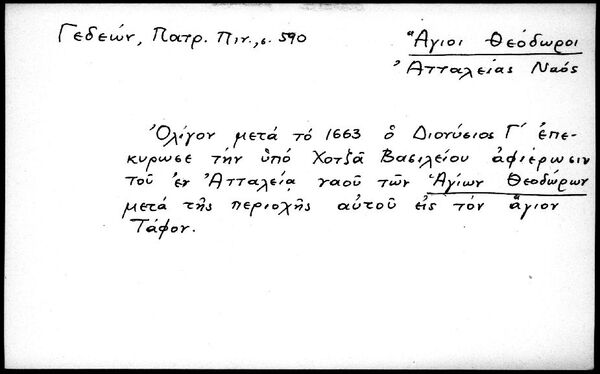 Γεδεών, Πατρ. Πιν., σ. 590
Ἅγιοι Θεόδωροι
Ἀτταλείας Ναός
Ὀλίγον μετά τό 1663 ὁ Διονύσιος Γ΄ ἐπε-
κύρωσε τήν ὑπό Χοτζᾶ Βασιλείου ἀφιέρωσιν
τοῦ ἐν Ἀτταλείᾳ ναοῦ τῶν Ἁγίων Θεοδώρων
μετά τῆς περιοχῆς αὐτοῦ εἰς τόν ἅγιον
Τάφον.